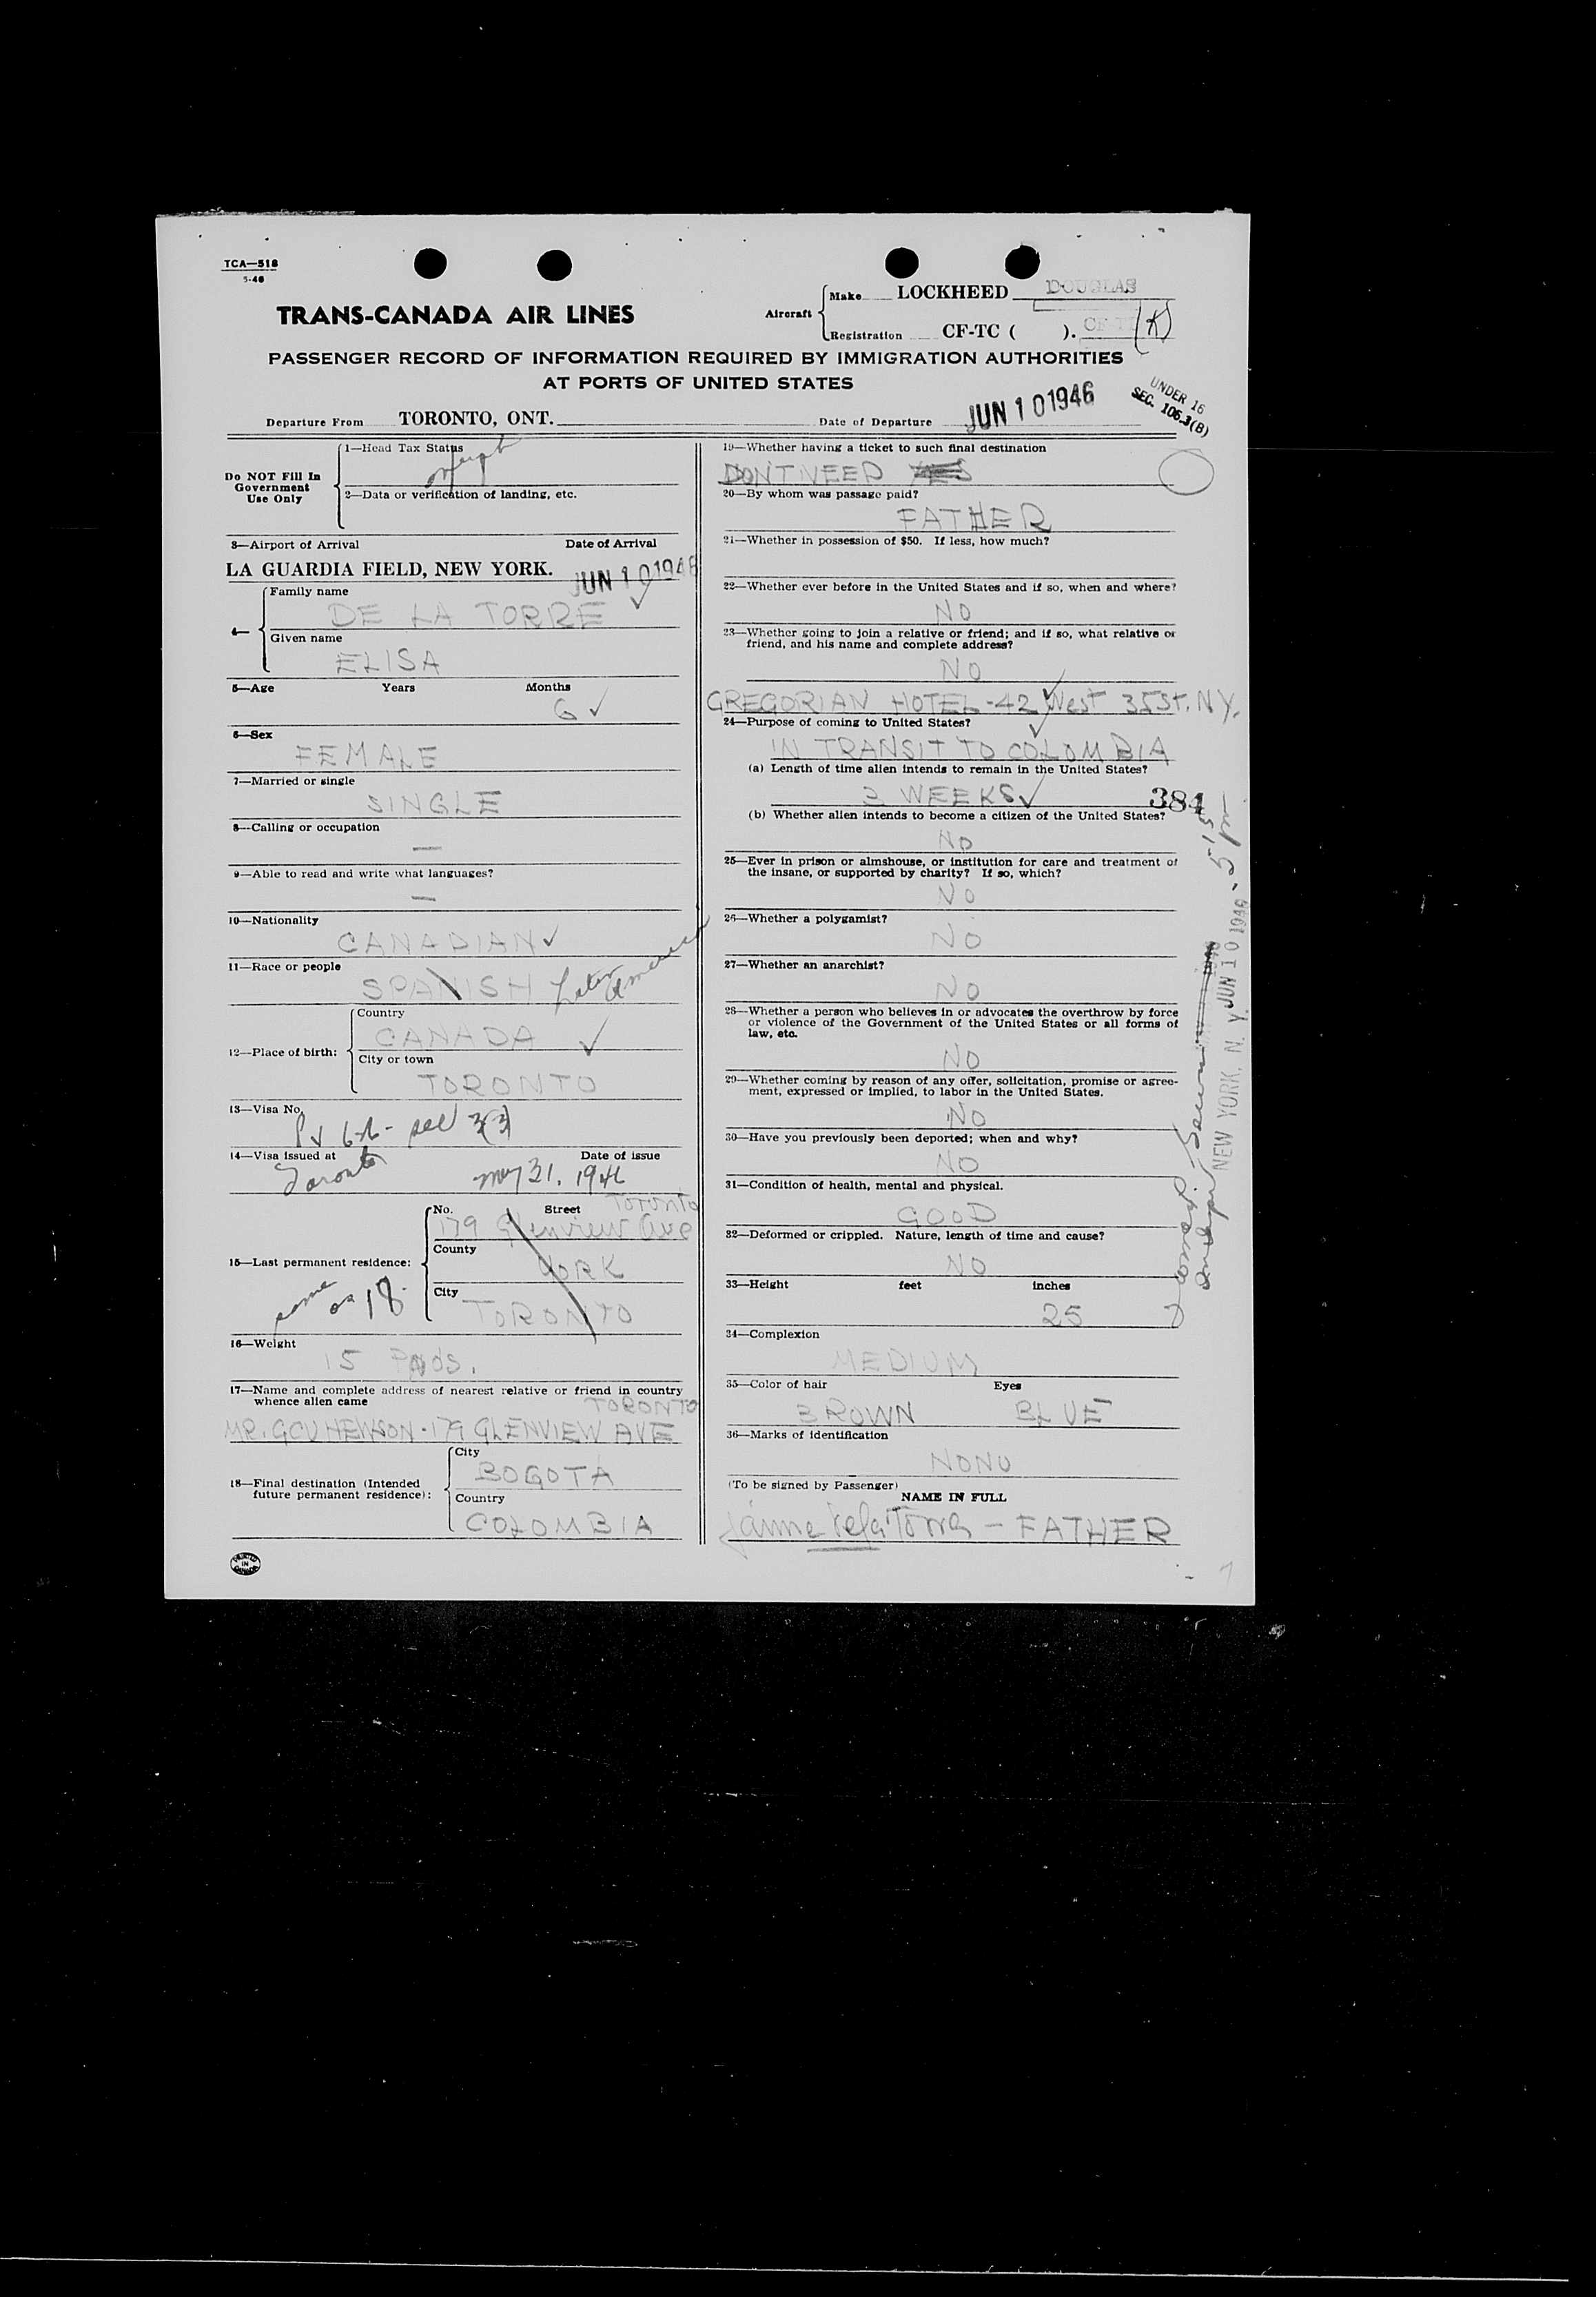 TCA—518
5-46
TRANS-CANADA AIR LINES
Aircraft
Make LOCKHEED DOUGLAS
Registration CF-TC ( ). CF-T (K)
PASSENGER RECORD OF INFORMATION REQUIRED BY IMMIGRATION AUTHORITIES
AT PORTS OF UNITED STATES
UNDER 16
SEC. 106.3(B)
Departure From TORONTO, ONT. Date of Departure JUN 10 1946
Do NOT Fill In
Government
Use Only
1—Head Tax Status
2—Data or verification of landing, etc.
3—Airport of Arrival Date of Arrival
LA GUARDIA FIELD, NEW YORK. JUN 10 1946
4—
Family name
DE LA TORRE
Given name
ELISA
5—Age Years Months
6
6—Sex
FEMALE
7—Married or single
SINGLE
8—Calling or occupation
—
9—Able to read and write what languages?
—
10—Nationality
CANADIAN
11—Race or people
SPANISH Latin American
12—Place of birth:
Country
CANADA
City or town
TORONTO
13—Visa No.
14—Visa issued at Date of issue
Toronto May 31, 1946
15—Last permanent residence:
No. Street TORONTO
179 Glenview Ave
County
YORK
City
TORONTO
same as 18
16—Weight
15 PNDS.
17—Name and complete address of nearest relative or friend in country
whence alien came
TORONTO
MR. GOU HEWSON - 179 GLENVIEW AVE
18—Final destination (Intended
future permanent residence):
City
BOGOTA
Country
COLOMBIA
19—Whether having a ticket to such final destination
DONT NEED YES
20—By whom was passage paid?
FATHER
21—Whether in possession of $50. If less, how much?
22—Whether ever before in the United States and if so, when and where?
NO
23—Whether going to join a relative or friend; and if so, what relative or
friend, and his name and complete address?
NO
GREGORIAN HOTEL - 42 West 35 St. N.Y.
24—Purpose of coming to United States?
IN TRANSIT TO COLOMBIA
(a) Length of time alien intends to remain in the United States?
2 WEEKS
384
(b) Whether alien intends to become a citizen of the United States?
NO
25—Ever in prison or almshouse, or institution for care and treatment of
the insane, or supported by charity? If so, which?
NO
26—Whether a polygamist?
NO
27—Whether an anarchist?
NO
28—Whether a person who believes in or advocates the overthrow by force
or violence of the Government of the United States or all forms of
law, etc.
NO
29—Whether coming by reason of any offer, solicitation, promise or agree-
ment, expressed or implied, to labor in the United States.
NO
30—Have you previously been deported; when and why?
NO
31—Condition of health, mental and physical.
GOOD
32—Deformed or crippled. Nature, length of time and cause?
NO
33—Height feet inches
25
34—Complexion
MEDIUM
35—Color of hair Eyes
BROWN BLUE
36—Marks of identification
NONO
(To be signed by Passenger)
NAME IN FULL
Jaime de la Torre — FATHER
NEW YORK, N. Y. JUN 10 1946 - 5'15 pm
PRINTED IN CANADA